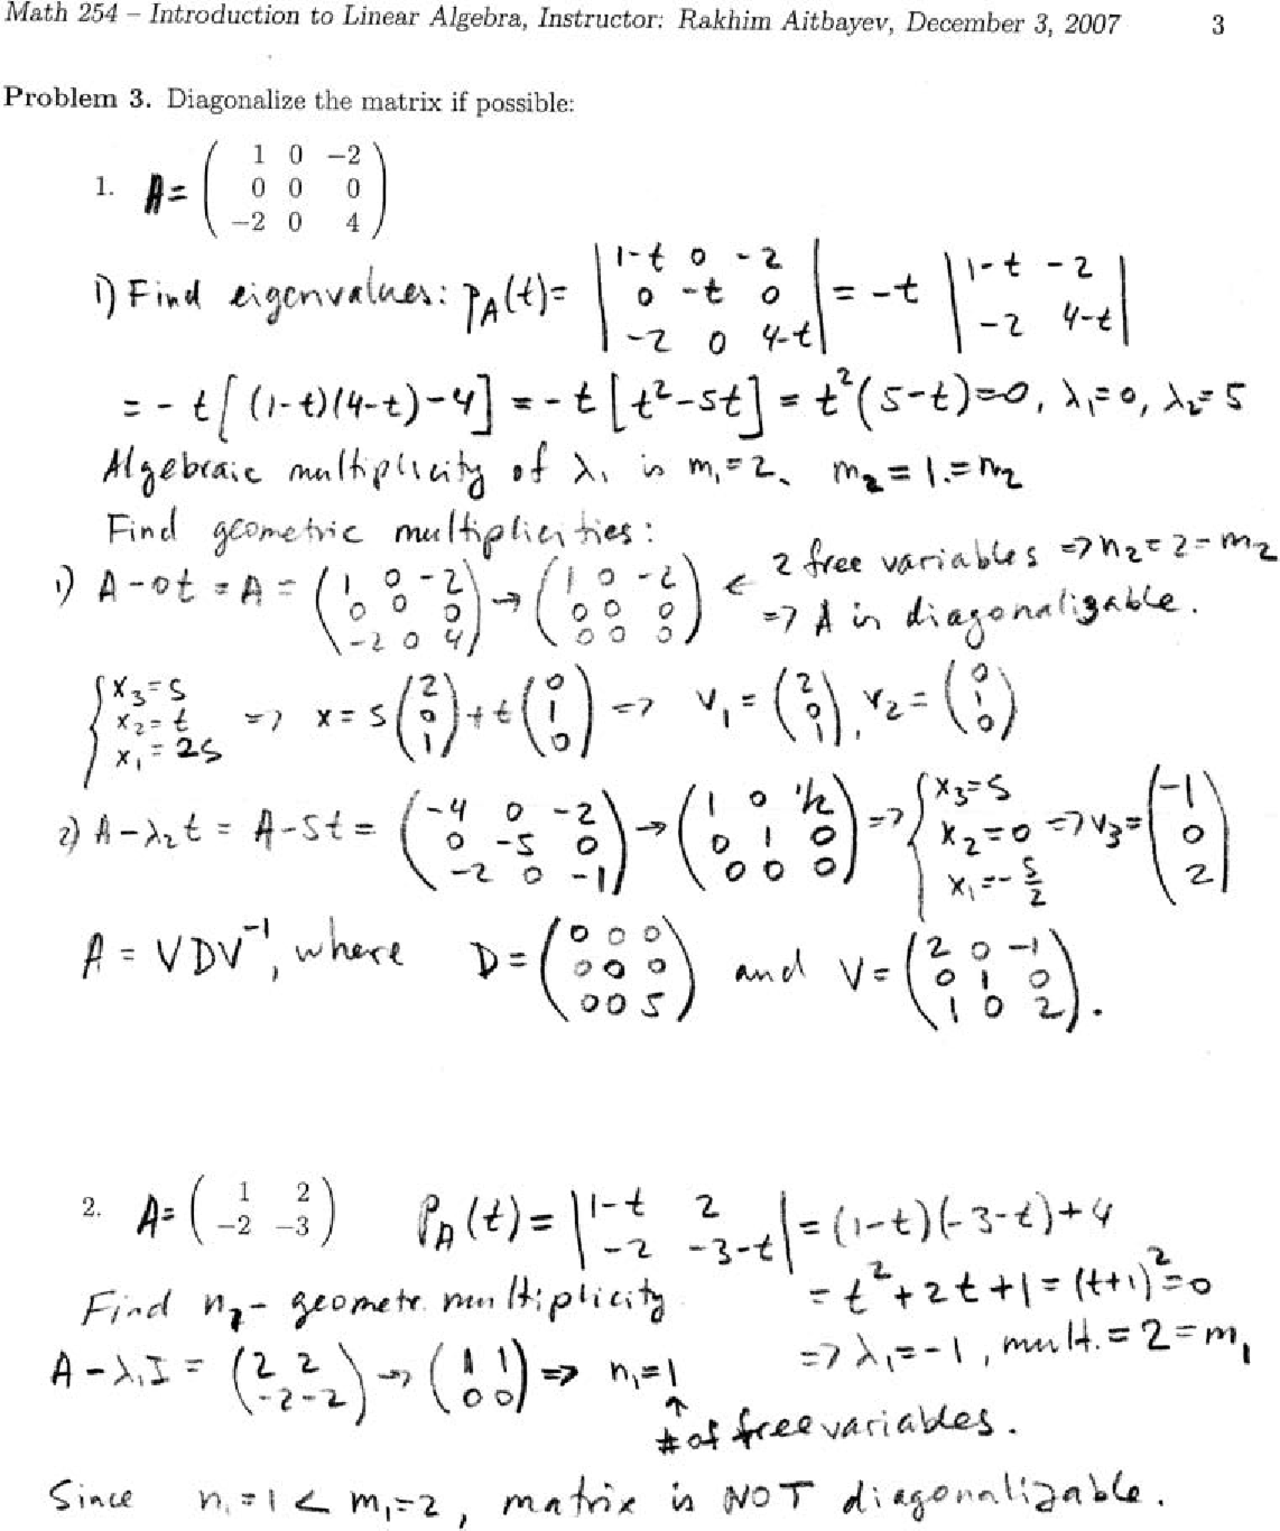 Math 254 – Introduction to Linear Algebra, Instructor: Rakhim Aitbayev, December 3, 2007 3
Problem 3. Diagonalize the matrix if possible:
1. A = ( 1 0 −2 ; 0 0 0 ; −2 0 4 )
1) Find eigenvalues: p_A(t) = | 1-t 0 -2 ; 0 -t 0 ; -2 0 4-t | = -t | 1-t -2 ; -2 4-t |
= -t[(1-t)(4-t)-4] = -t[t²-5t] = t²(5-t)=0, λ₁=0, λ₂=5
Algebraic multiplicity of λ₁ is m₁=2, m₂=1.=n₂
Find geometric multiplicities:
1) A-0t = A = ( 1 0 -2 ; 0 0 0 ; -2 0 4 ) → ( 1 0 -2 ; 0 0 0 ; 0 0 0 ) ← 2 free variables => n₂=2=m₂
=> A is diagonalizable.
{ x₃=s ; x₂=t ; x₁=2s => x = s( 2 ; 0 ; 1 ) + t( 0 ; 1 ; 0 ) => v₁ = ( 2 ; 0 ; 1 ), v₂ = ( 0 ; 1 ; 0 )
2) A-λ₂t = A-5t = ( -4 0 -2 ; 0 -5 0 ; -2 0 -1 ) → ( 1 0 1/2 ; 0 1 0 ; 0 0 0 ) => { x₃=s ; x₂=0 ; x₁=-s/2 => v₃ = ( -1 ; 0 ; 2 )
A = VDV⁻¹, where D = ( 0 0 0 ; 0 0 0 ; 0 0 5 ) and V = ( 2 0 -1 ; 0 1 0 ; 1 0 2 ).
2. A = ( 1 2 ; −2 −3 ) P_A(t) = | 1-t 2 ; -2 -3-t | = (1-t)(-3-t)+4
= t²+2t+1 = (t+1)²=0
Find n₁- geometr. multiplicity
=> λ₁=-1, mult.=2=m₁
A-λ₁I = ( 2 2 ; -2 -2 ) → ( 1 1 ; 0 0 ) => n₁=1
↑
# of free variables.
Since n₁=1 < m₁=2, matrix is NOT diagonalizable.